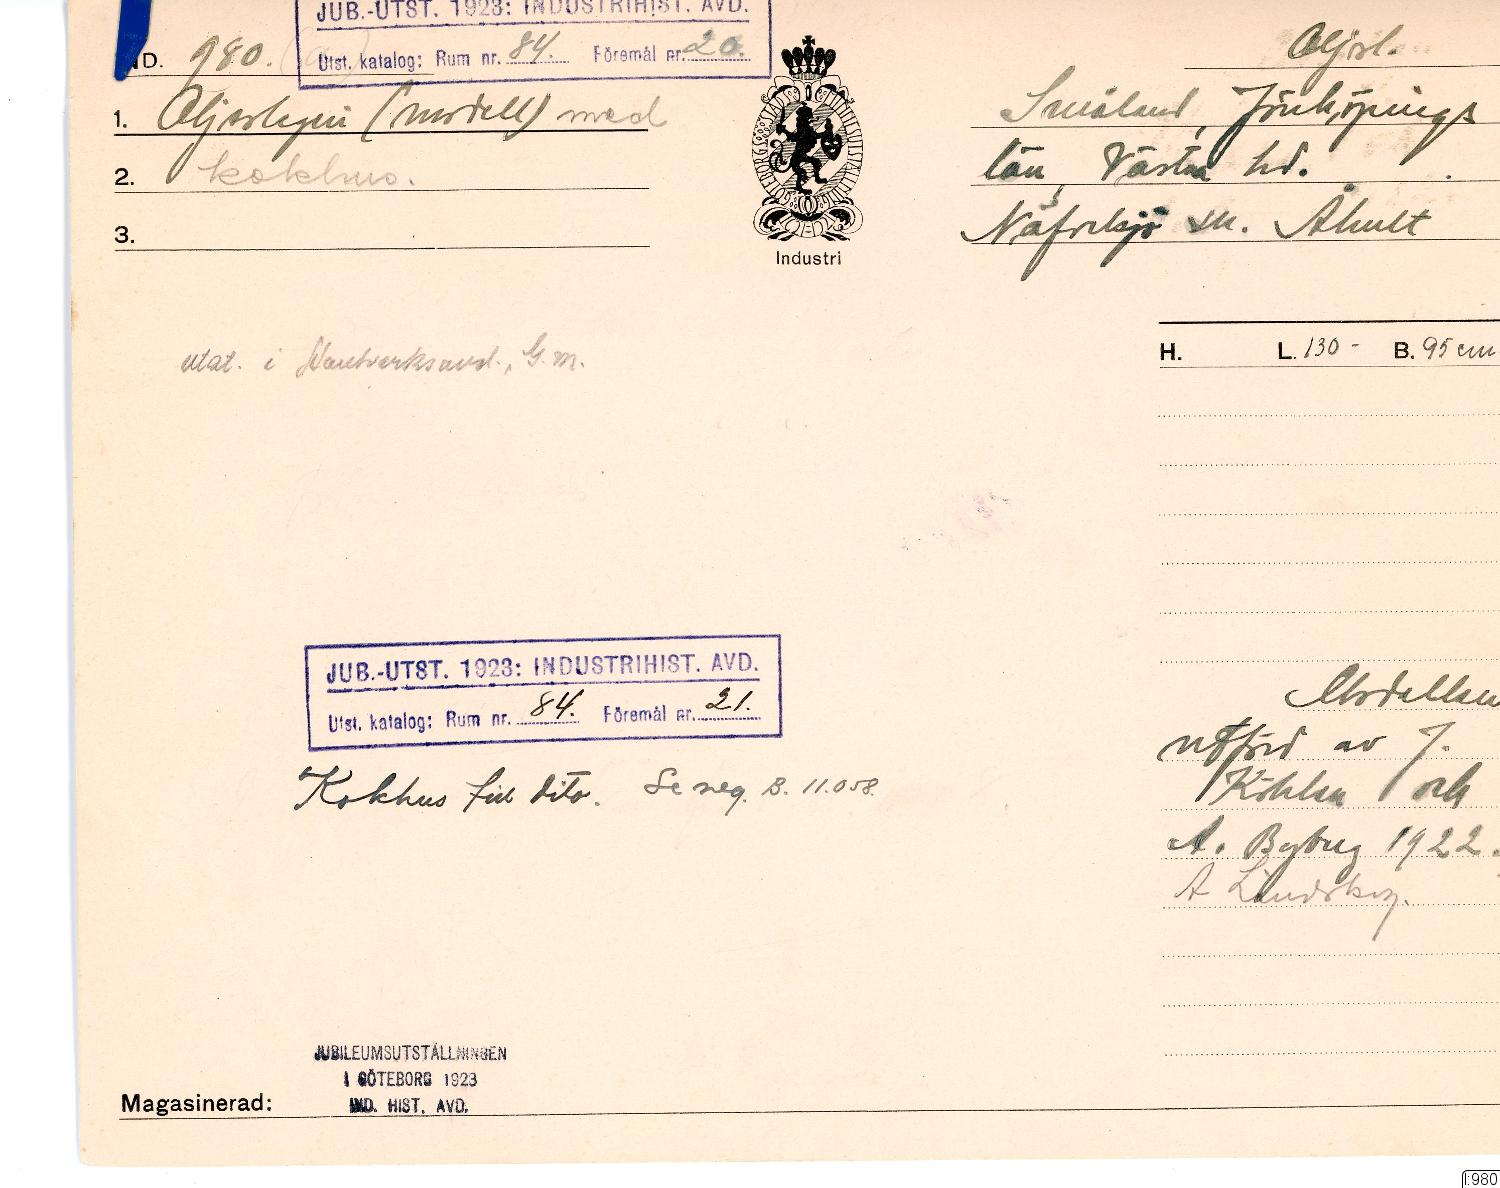 JUB.-UTST. 1923: INDUSTRIHIST. AVD.
Utst. katalog: Rum nr. 84. Föremål nr. 20.
ND. 980.
Oljesl.
1. Oljeslageri (modell) med
2. kokhus.
3.
Småland, Jönköpings
län, Västra hd.
Näfvelsjö sn. Åhult
Industri
utst. i Hantverksavd., G.M.
H. L. 130 - B. 95 cm
JUB.-UTST. 1923: INDUSTRIHIST. AVD.
Utst. katalog: Rum nr. 84. Föremål nr. 21.
Kokhus till dito. Se neg. B. 11.058.
Modellen
utförd av J.
Köhler och
A. Byberg 1922.
A Lindskog.
JUBILEUMSUTSTÄLLNINGEN
I GÖTEBORG 1923
IND. HIST. AVD.
Magasinerad:
I:980